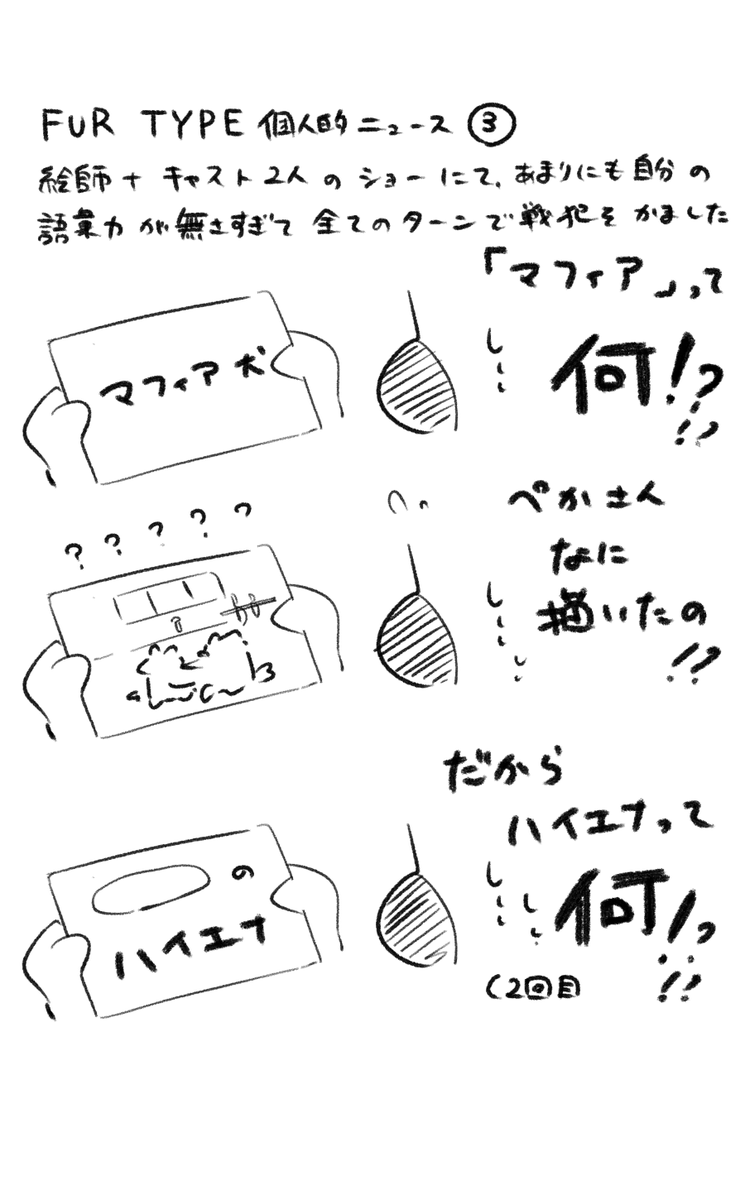 FUR TYPE 個人的ニュース ③
絵師+キャスト2人のショーにて、あまりにも自分の
語彙力が無さすぎて全てのターンで戦犯をかました
「マフィア」って
何!?
!?
マフィア犬
?????
ぺかさん
なに
描いたの
!?
だから
ハイエナって
何!?
!?
(2回目
の
ハイエナ